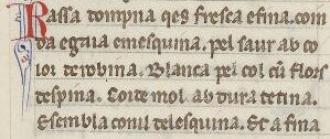 Rassa tompna qes fresca e fina. coin
da eguia emesquina. pel saur ab co
lor terobina. Blanca pel col cū flors
tespina. Coide mol ab dura tetina.
Esembla conil telesquina. Et a fina